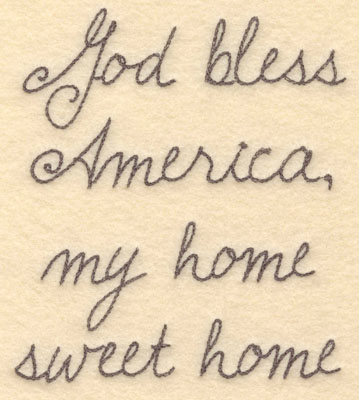 God bless
America,
my home
sweet home